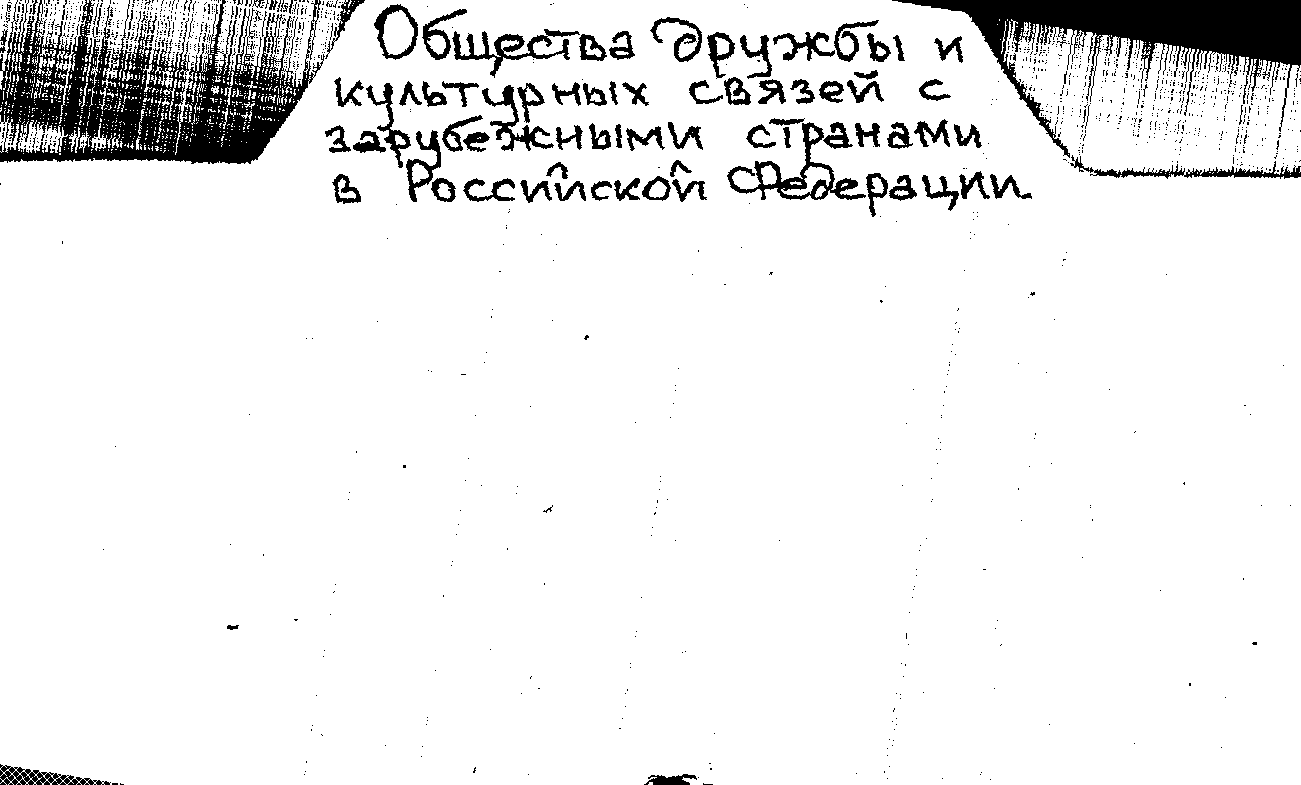 Общества дружбы и
культурных связей с
зарубежными странами
в Российской Федерации